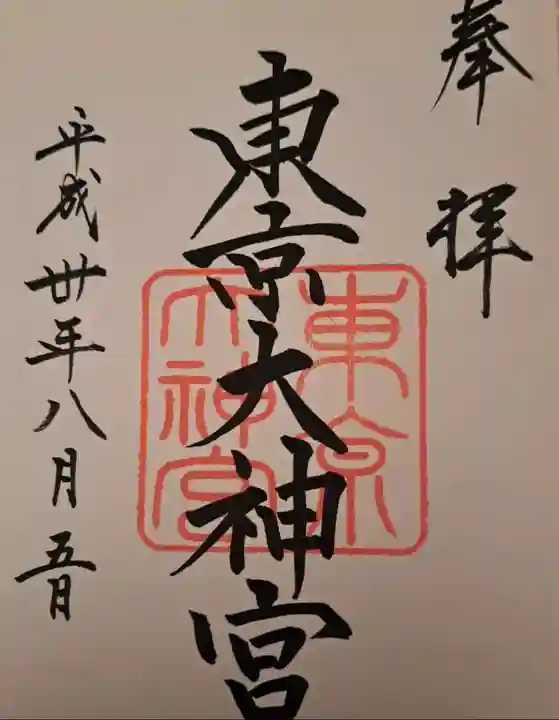 奉拝
東京大神宮
東京大神宮
平成卅年八月五日